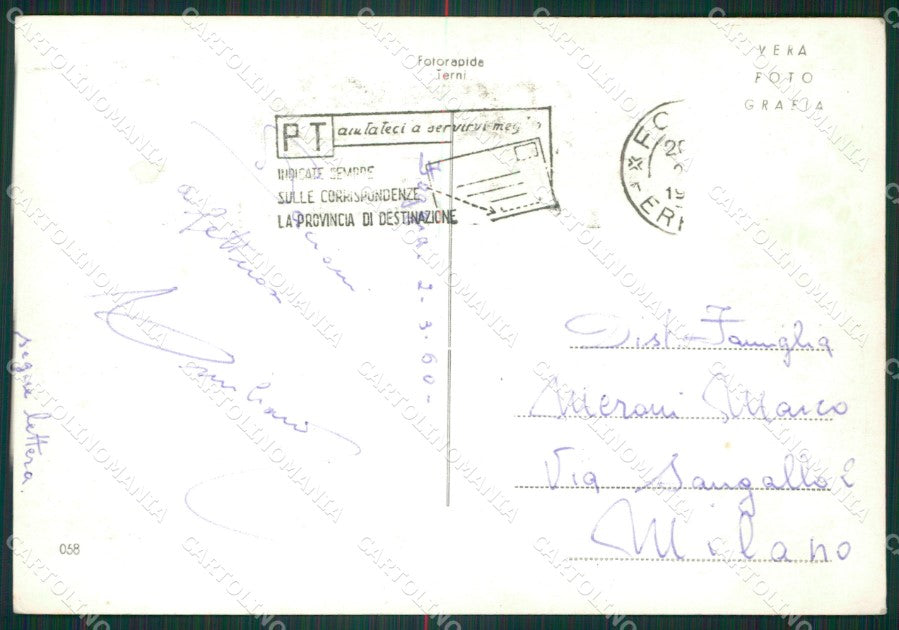 Fotorapida
Terni
VERA
FOTO
GRAFIA
PT aiutateci a servirvi meg
INDICATE SEMPRE
SULLE CORRISPONDENZE
LA PROVINCIA DI DESTINAZIONE
2-3-60-
affettuosi
segue lettera.
Dist. Famiglia
Meroni Marco
Via Sangallo 2
Milano
058
CARTOLINOMANIA